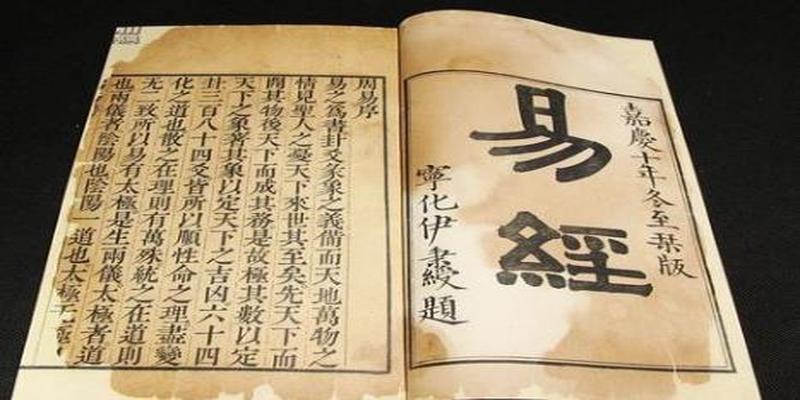 嘉慶十年冬至栞版
易經
寧化伊秉綬題
周易序
易之爲書卦爻彖象之義備而天地萬物之
情見聖人之憂天下來世其至矣先天下而
開其物後天下而成其務是故極其數以定
天下之象著其象以定天下之吉凶六十四
卦三百八十四爻皆所以順性命之理盡變
化之道也散之在理則有萬殊統之在道則
无二致所以易有太極是生兩儀太極者道
也兩儀者陰陽也陰陽一道也太極无極